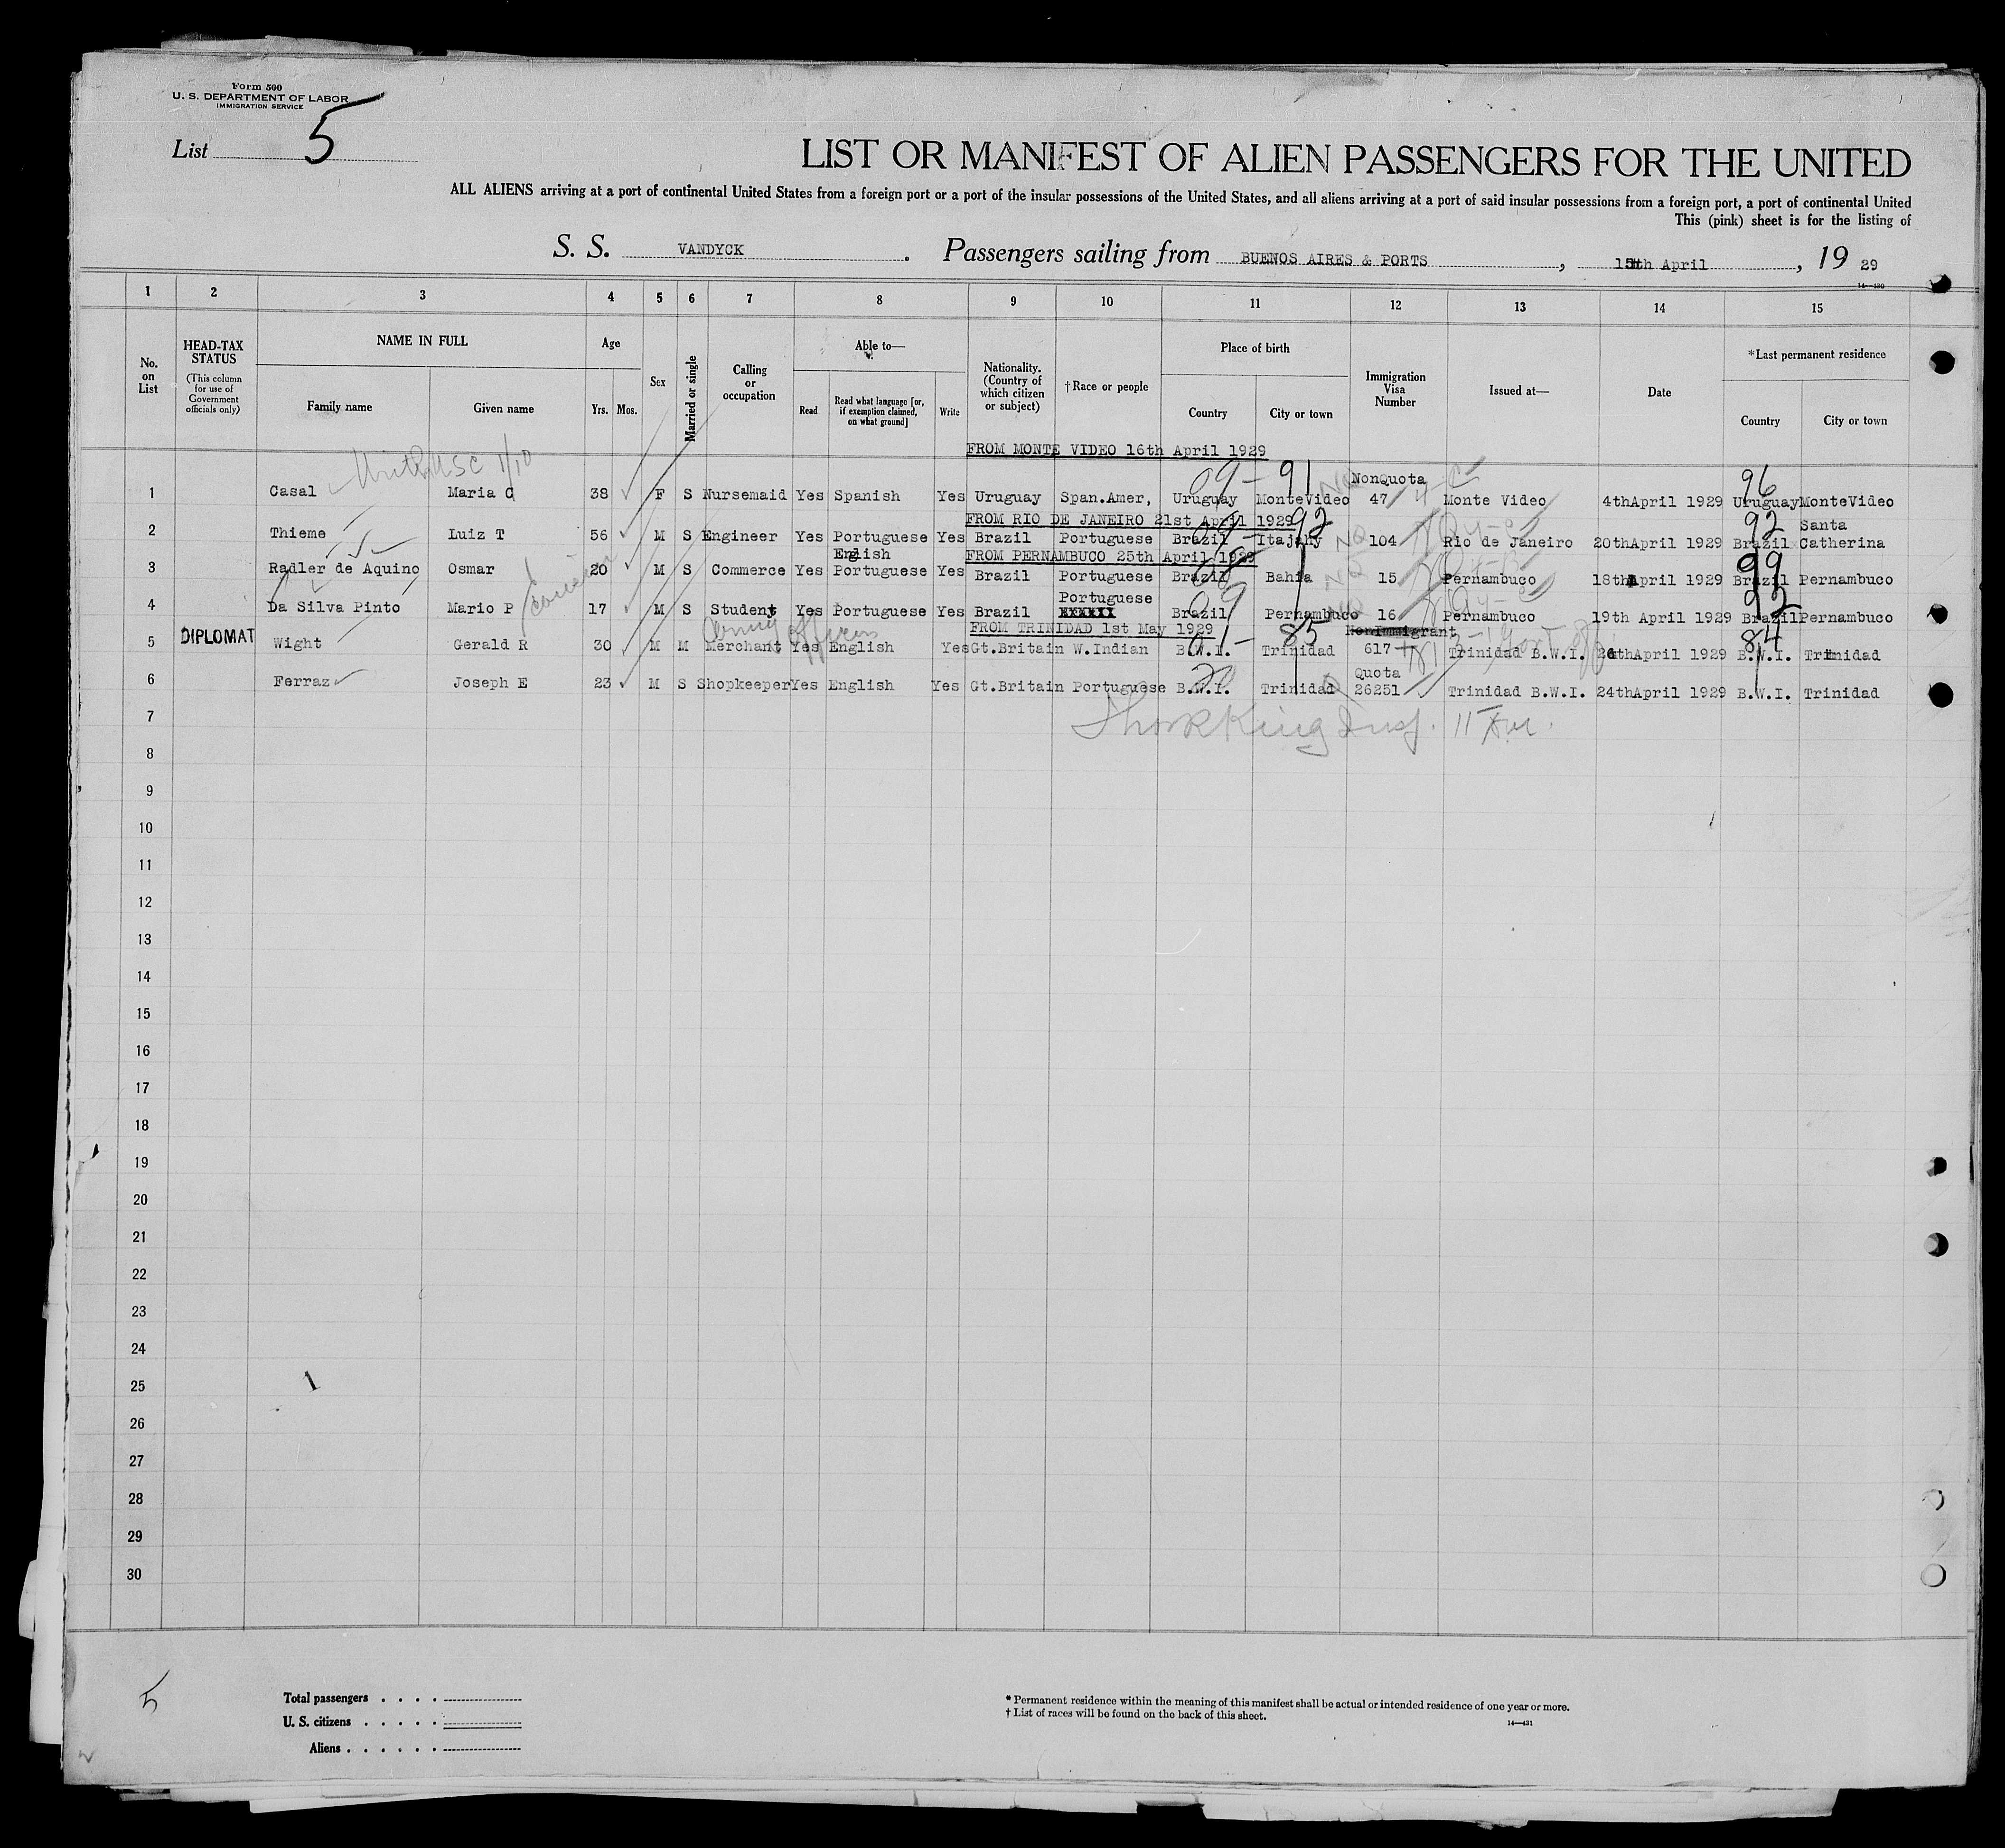 Form 500
U. S. DEPARTMENT OF LABOR
IMMIGRATION SERVICE
List 5
LIST OR MANIFEST OF ALIEN PASSENGERS FOR THE UNITED
ALL ALIENS arriving at a port of continental United States from a foreign port or a port of the insular possessions of the United States, and all aliens arriving at a port of said insular possessions from a foreign port, a port of continental United
This (pink) sheet is for the listing of
S. S. VANDYCK. Passengers sailing from BUENOS AIRES & PORTS, 15th April, 19 29
14—430
1 2 3 4 5 6 7 8 9 10 11 12 13 14 15
No. on List
HEAD-TAX STATUS (This column for use of Government officials only)
NAME IN FULL
Family name Given name
Age
Yrs. Mos.
Sex
Married or single
Calling or occupation
Able to—
Read Read what language [or, if exemption claimed, on what ground] Write
Nationality. (Country of which citizen or subject)
†Race or people
Place of birth
Country City or town
Immigration Visa Number
Issued at—
Date
*Last permanent residence
Country City or town
FROM MONTE VIDEO 16th April 1929
09 - 91 NonQuota 96
1 Casal Maria C 38 F S Nursemaid Yes Spanish Yes Uruguay Span.Amer, Uruguay MonteVideo 47 Monte Video 4thApril 1929 Uruguay MonteVideo
FROM RIO DE JANEIRO 21st April 1929 92 92 Santa
2 Thieme Luiz T 56 M S Engineer Yes Portuguese Yes Brazil Portuguese Brazil Itajahy 104 Rio de Janeiro 20thApril 1929 Brazil Catherina
English FROM PERNAMBUCO 25th April 1929 99
3 Radler de Aquino Osmar 20 M S Commerce Yes Portuguese Yes Brazil Portuguese Brazil Bahia 15 Pernambuco 18thApril 1929 Brazil Pernambuco
Portuguese 09 92
4 Da Silva Pinto Mario P 17 M S Student Yes Portuguese Yes Brazil XXXXXX Brazil Pernambuco 16 Pernambuco 19th April 1929 Brazil Pernambuco
FROM TRINIDAD 1st May 1929 85 NonImmigrant 84
5 DIPLOMAT Wight Gerald R 30 M M Merchant Yes English Yes Gt.Britain W.Indian B.W.I. Trinidad 617 Trinidad B.W.I. 26thApril 1929 B.W.I. Trinidad
Quota
6 Ferraz Joseph E 23 M S Shopkeeper Yes English Yes Gt.Britain Portuguese B.W.I. Trinidad 26251 Trinidad B.W.I. 24thApril 1929 B.W.I. Trinidad
7
8
9
10
11
12
13
14
15
16
17
18
19
20
21
22
23
24
25
26
27
28
29
30
5
Total passengers . . . .
U. S. citizens . . . . .
Aliens . . . . . .
* Permanent residence within the meaning of this manifest shall be actual or intended residence of one year or more.
† List of races will be found on the back of this sheet.
14—431